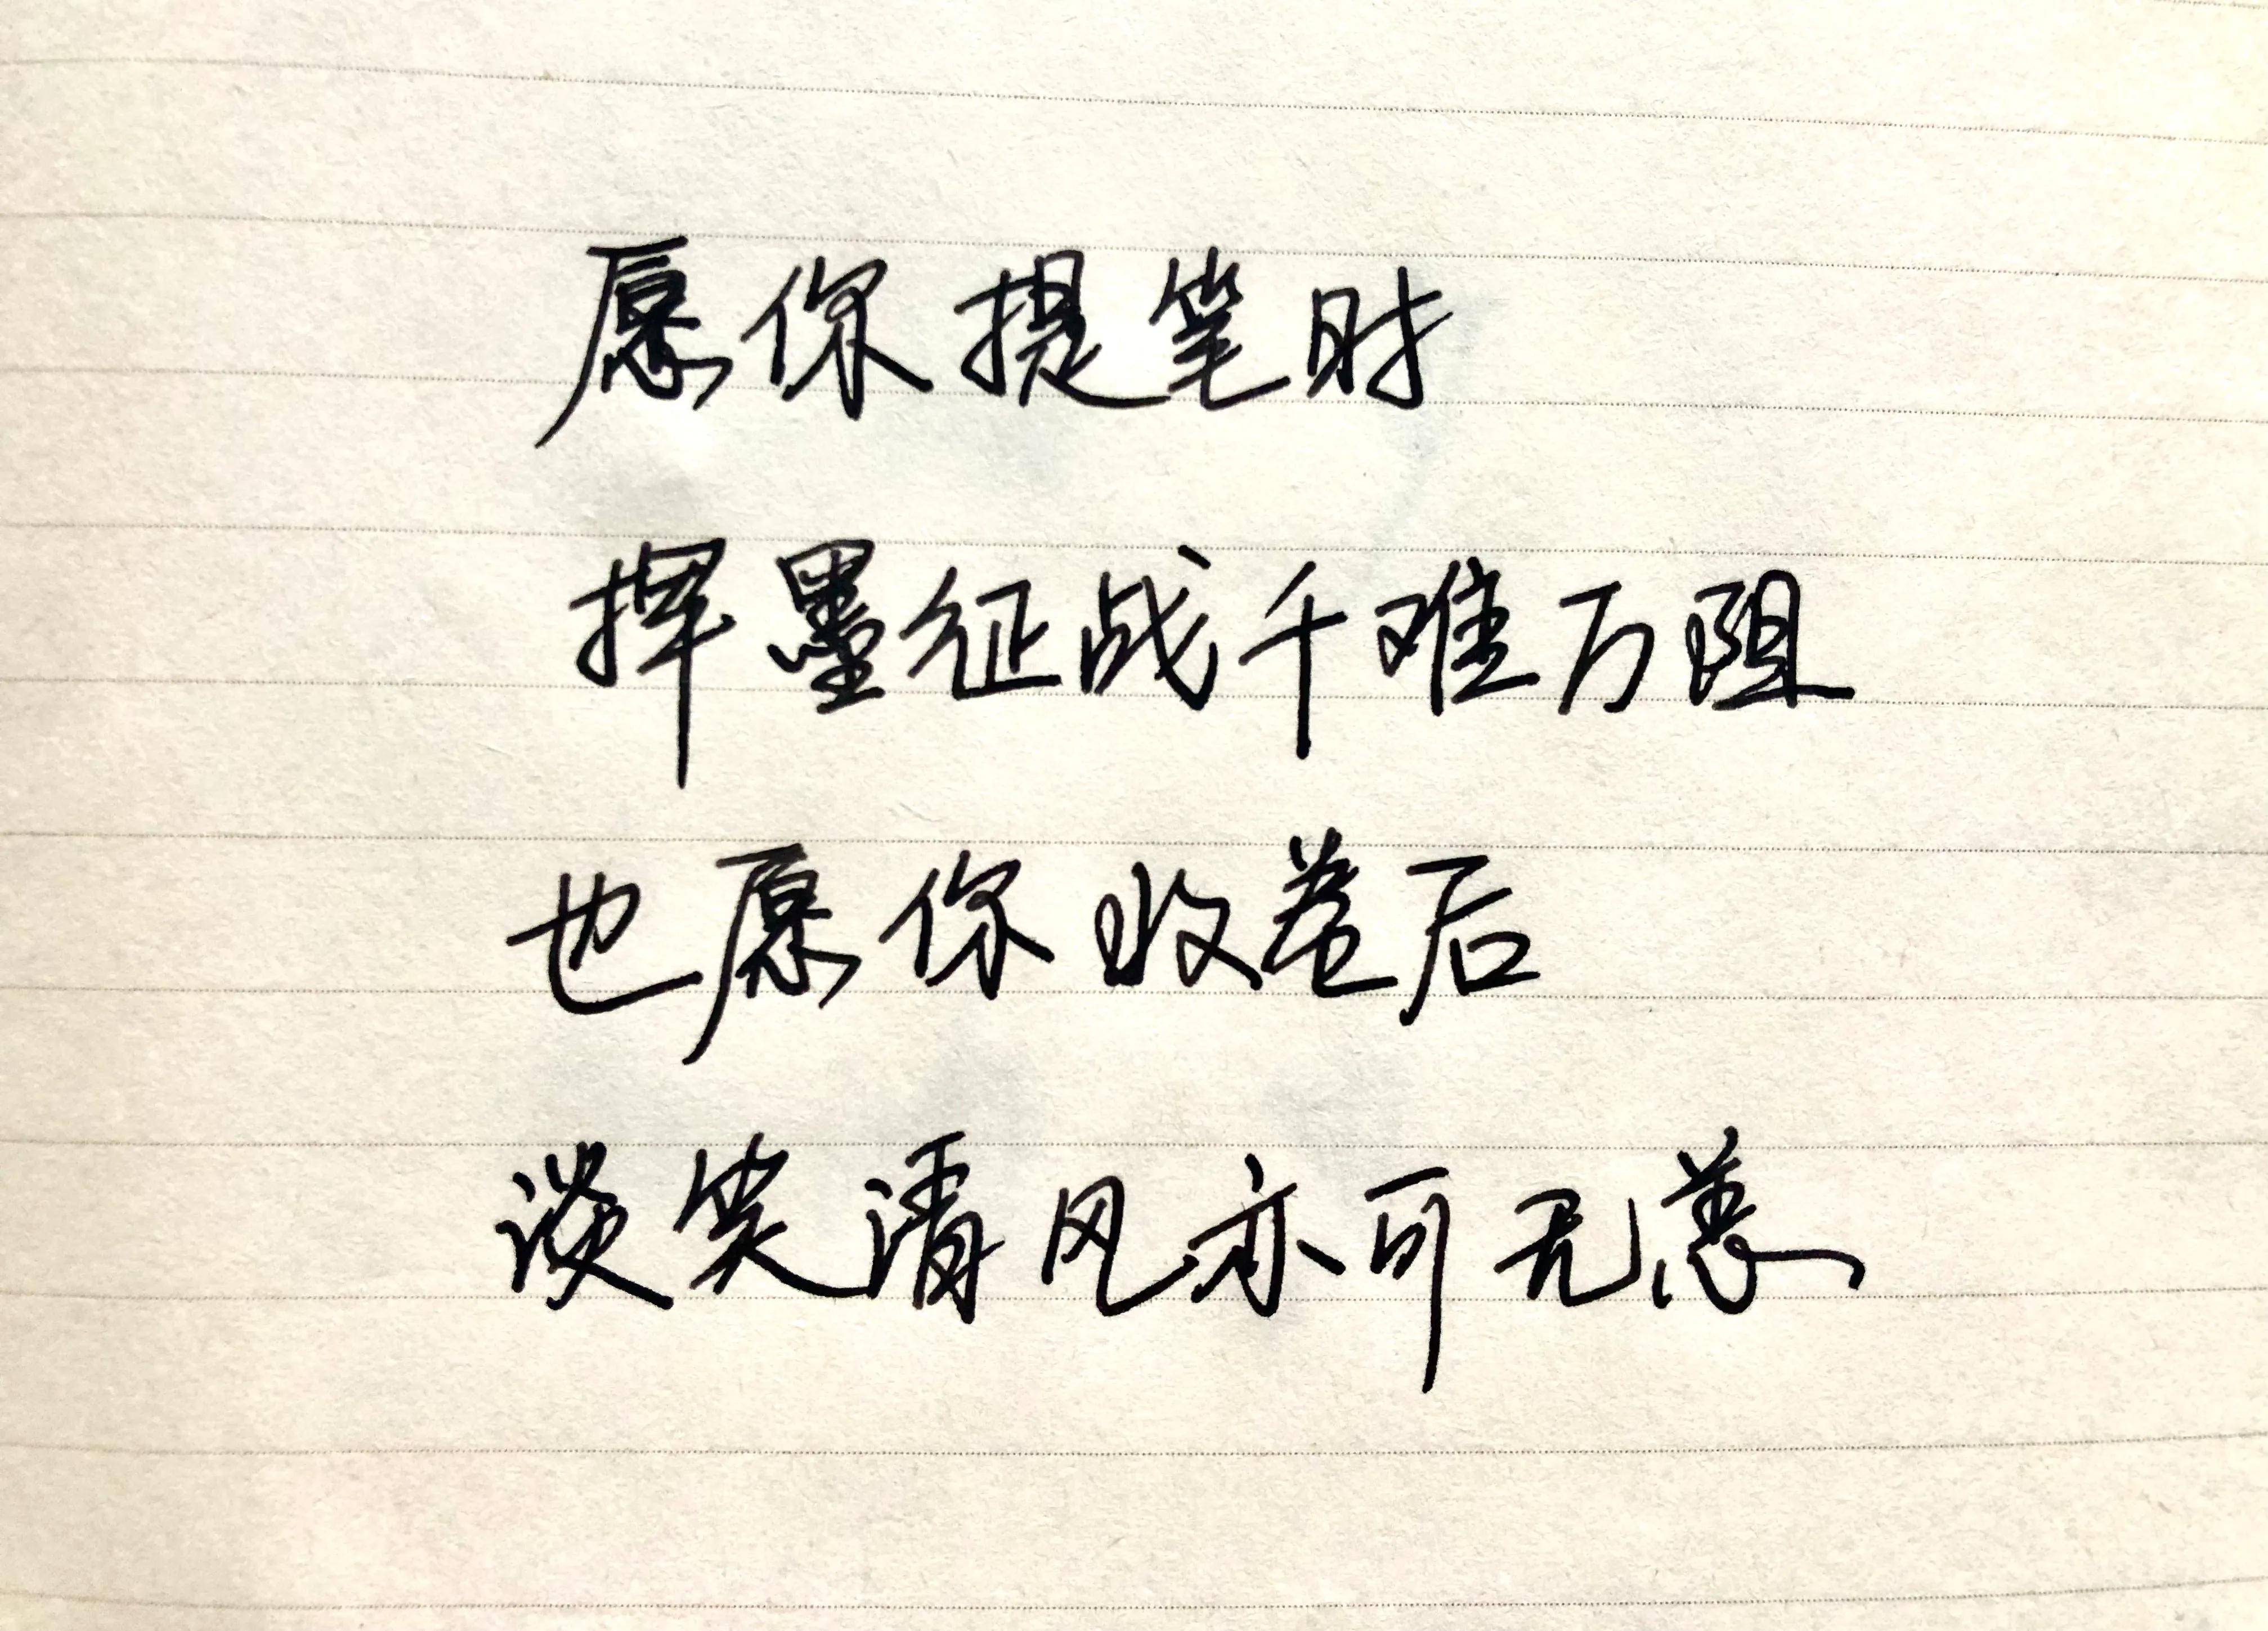 愿你提笔时
挥墨征战千难万阻
也愿你收卷后
谈笑清风亦可无恙